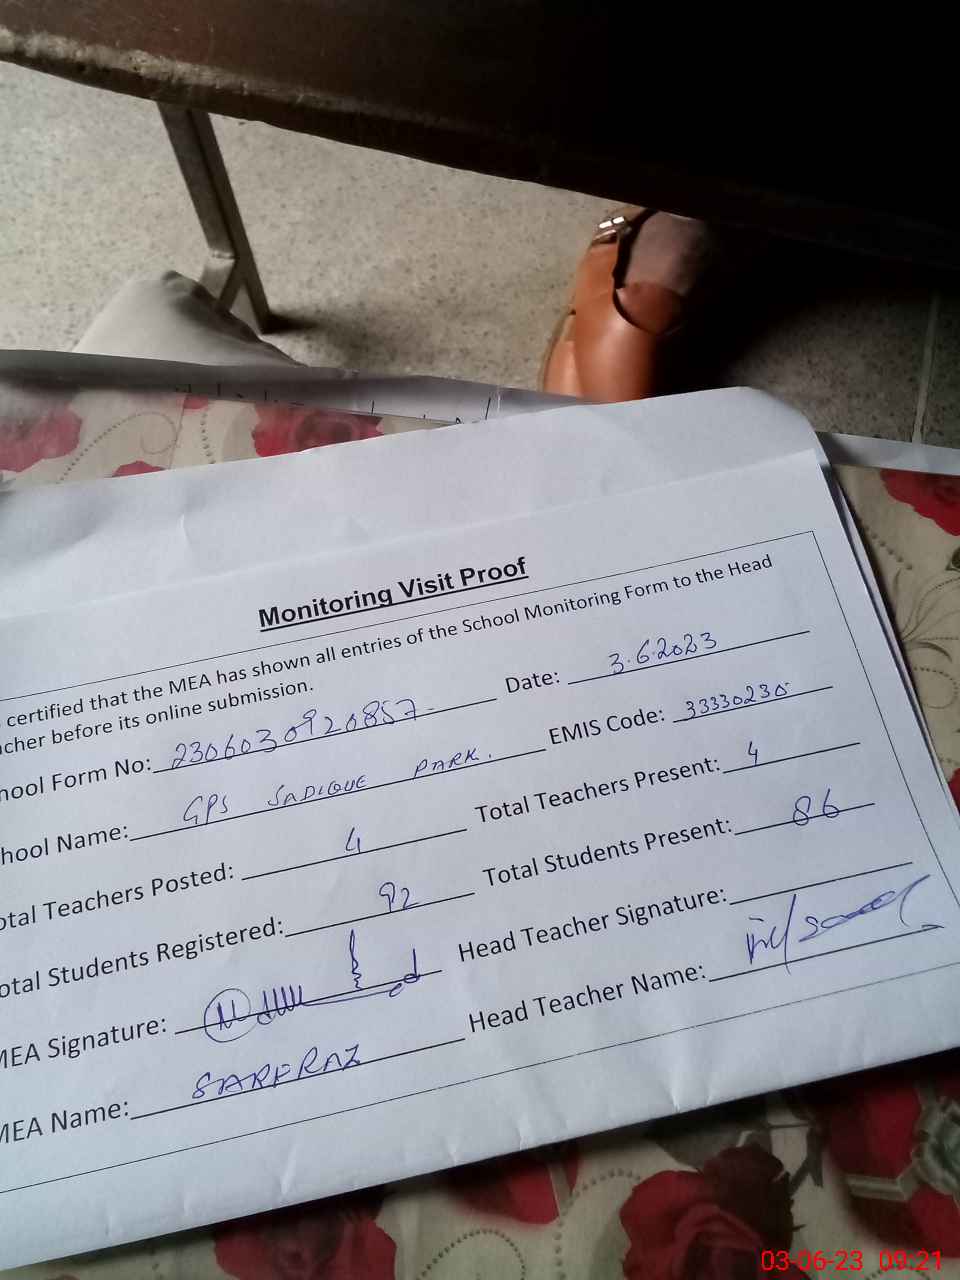 Monitoring Visit Proof
certified that the MEA has shown all entries of the School Monitoring Form to the Head
acher before its online submission.
hool Form No: 2306030920857 Date: 3.6.2023
hool Name: GPS SADIQUE PARK. EMIS Code: 33330230
otal Teachers Posted: 4 Total Teachers Present: 4
otal Students Registered: 92 Total Students Present: 86
MEA Signature: Head Teacher Signature:
MEA Name: SARFRAZ Head Teacher Name:
03-06-23 09:21